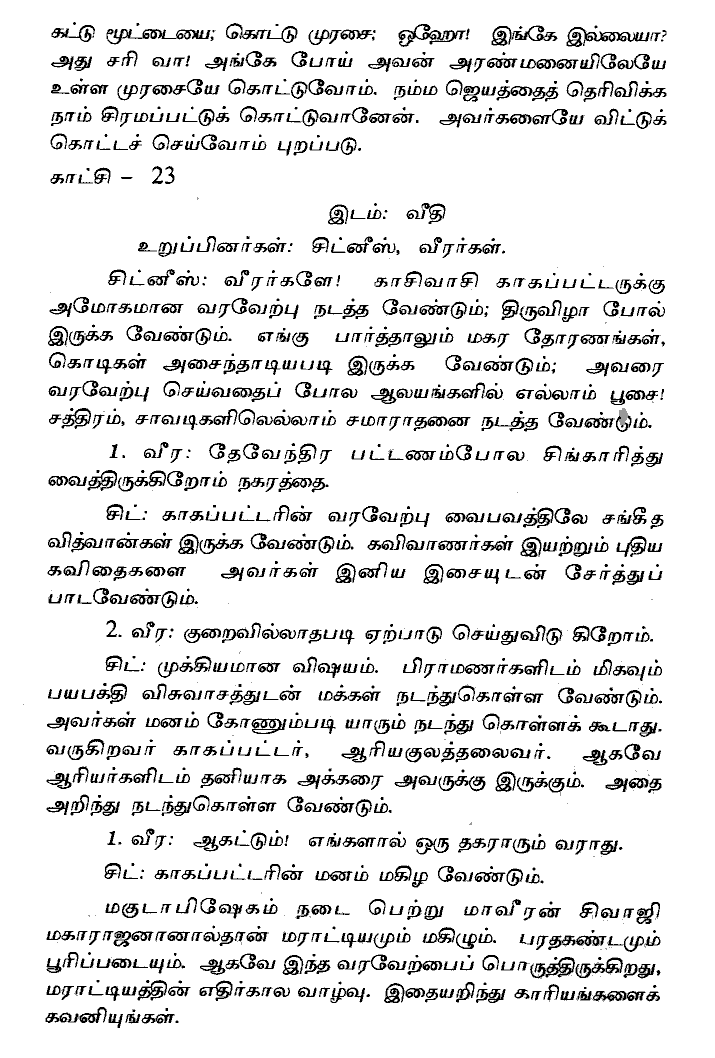 கட்டு மூட்டையை; கொட்டு முரசை; ஓஹோ! இங்கே இல்லையா?
அது சரி வா! அங்கே போய் அவன் அரண்மனையிலேயே
உள்ள முரசையே கொட்டுவோம். நம்ம ஜெயத்தைத் தெரிவிக்க
நாம் சிரமப்பட்டுக் கொட்டுவானேன். அவர்களையே விட்டுக்
கொட்டச் செய்வோம் புறப்படு.
காட்சி – 23
இடம்: வீதி
உறுப்பினர்கள்: சிட்னீஸ், வீரர்கள்.
சிட்னீஸ்: வீரர்களே! காசிவாசி காகப்பட்டருக்கு
அமோகமான வரவேற்பு நடத்த வேண்டும்; திருவிழா போல்
இருக்க வேண்டும். எங்கு பார்த்தாலும் மகர தோரணங்கள்,
கொடிகள் அசைந்தாடியபடி இருக்க வேண்டும்; அவரை
வரவேற்பு செய்வதைப் போல ஆலயங்களில் எல்லாம் பூசை!
சத்திரம், சாவடிகளிலெல்லாம் சமாராதனை நடத்த வேண்டும்.
1. வீர: தேவேந்திர பட்டணம்போல சிங்காரித்து
வைத்திருக்கிறோம் நகரத்தை.
சிட்: காகப்பட்டரின் வரவேற்பு வைபவத்திலே சங்கீத
வித்வான்கள் இருக்க வேண்டும். கவிவாணர்கள் இயற்றும் புதிய
கவிதைகளை அவர்கள் இனிய இசையுடன் சேர்த்துப்
பாடவேண்டும்.
2. வீர: குறைவில்லாதபடி ஏற்பாடு செய்துவிடு கிறோம்.
சிட்: முக்கியமான விஷயம். பிராமணர்களிடம் மிகவும்
பயபக்தி விசுவாசத்துடன் மக்கள் நடந்துகொள்ள வேண்டும்.
அவர்கள் மனம் கோணும்படி யாரும் நடந்து கொள்ளக் கூடாது.
வருகிறவர் காகப்பட்டர், ஆரியகுலத்தலைவர். ஆகவே
ஆரியர்களிடம் தனியாக அக்கரை அவருக்கு இருக்கும். அதை
அறிந்து நடந்துகொள்ள வேண்டும்.
1. வீர: ஆகட்டும்! எங்களால் ஒரு தகராரும் வராது.
சிட்: காகப்பட்டரின் மனம் மகிழ வேண்டும்.
மகுடாபிஷேகம் நடை பெற்று மாவீரன் சிவாஜி
மகாராஜனானால்தான் மராட்டியமும் மகிழும். பரதகண்டமும்
பூரிப்படையும். ஆகவே இந்த வரவேற்பைப் பொருத்திருக்கிறது,
மராட்டியத்தின் எதிர்கால வாழ்வு. இதையறிந்து காரியங்களைக்
கவனியுங்கள்.